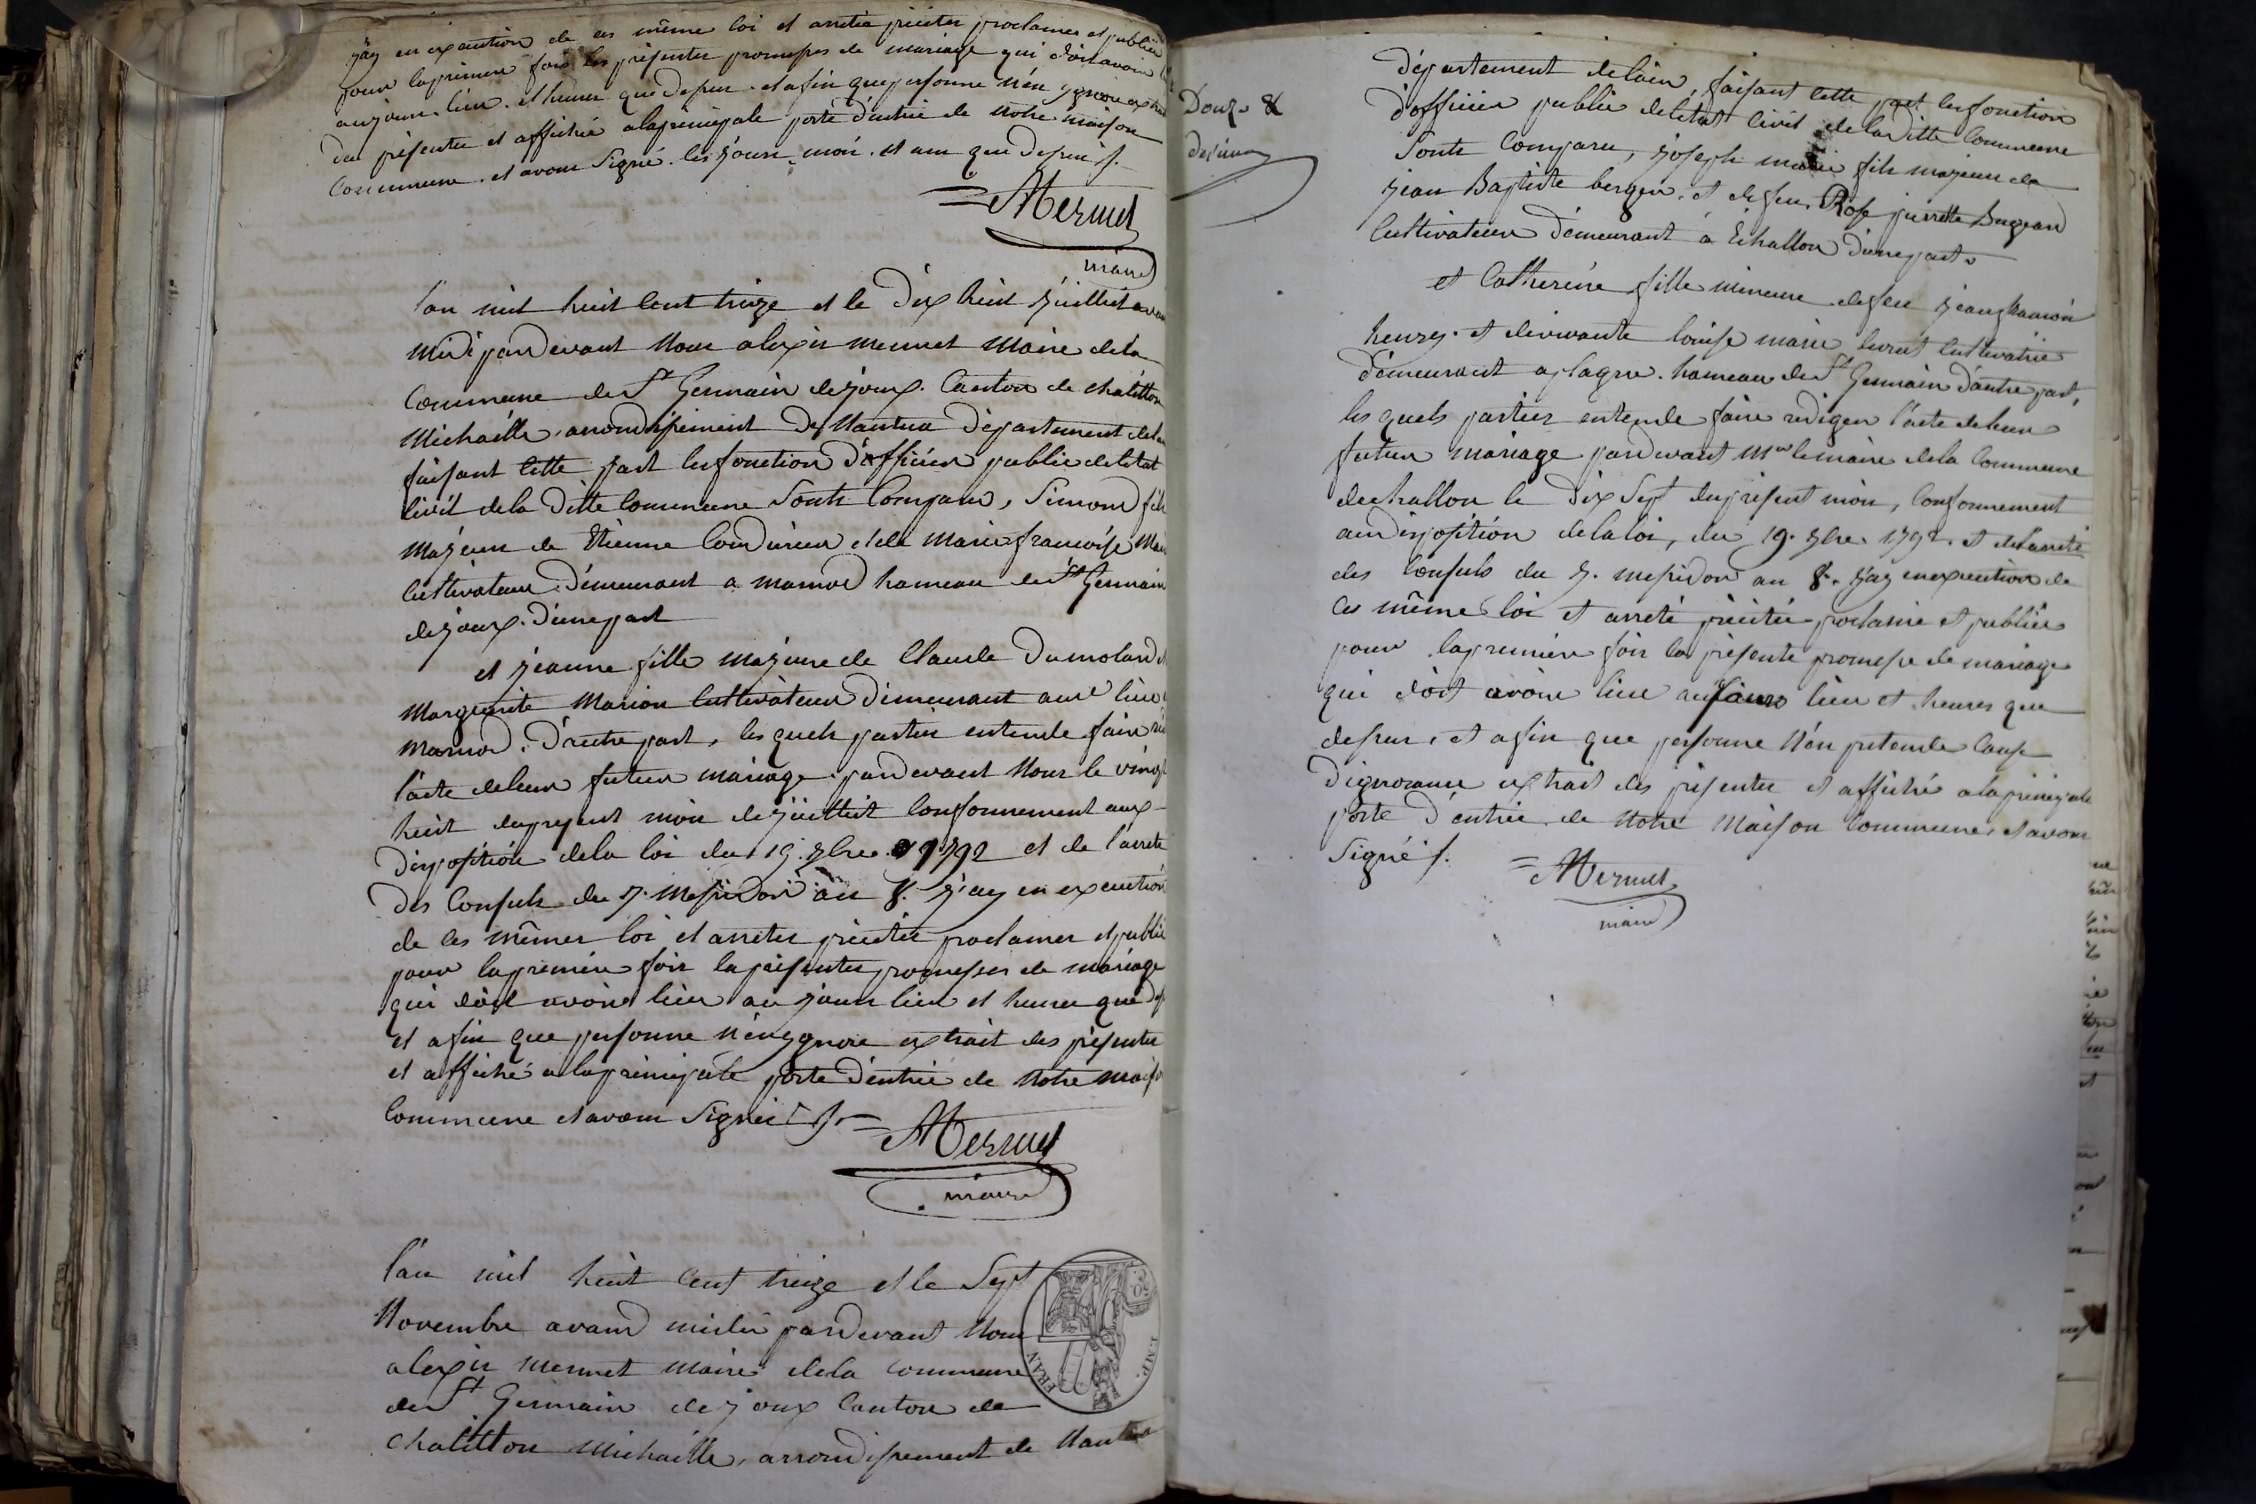 j'ay en execution de ces même loi et arretés précités proclamer et publier
pour la premiere fois les présentes promesses de mariage qui doit avoir
au jour, lieu, et heures que dessus. et afin que personne n'en ygnore extrait
des présentes et affiché a la principale porte d'entrée de notre maison
Commune. et avons signé les jour, moi, et an que dessus /.
AMermet
maire
l'an mil huit cent treize et le dix huit juillet avan
midi pardevant nous alexis mermet maire de la
Commune de St Germain de joux. Canton de chatillon
Michaille, arrondissement de Nantua département de lain
faisant cette part les fonction d'officier public de l'etat
civil de la ditte commune sonts comparus, Simond fils
majeur de Etienne Couvrieux et de Marie françoise
cultivateur demeurant a marnod hameau de St Germain
de joux. d'une part
et jeanne fille majeure de Claude Dumolard et
Marguerite Marion cultivateur demeurant au d lieu
marnod. d'autre part, les quels parties entende faire ré
l'acte de leur futur mariage pardevant nous le vingt
huit du present mois de juillet conformement aux
disposition de la loi du 19. 7bre 1792 et de l'arrete
des Consuls du 7. messidor an 8. j'ay en execution
de ces mêmes loi et arretes précités proclamer et publié
pour la premiere fois la présentes promesses de mariage
qui doit avoir lieu au jour lieu et heures que des
et afin que personne n'en ygnore extrait des présentes
et affiché a la principale porte d'entrée de notre maison
Commune et avons signé /.
AMermet
maire
l'an mil huit cent treize et le Sept
Novembre avand midi pardevant nous
alexis mermet maire de la commune
de St Germain de joux Canton de
Chatillon Michaille, arrondissement de Nantua
FRAN
IMP.
Douze &
dernier
département de lain, faisant cette part les fonction
d'officier public de l'etat civil de la ditte Commune
Sonts Comparu, joseph marie fils majeur de
jean Baptiste berger, et de feu Rose pierrette Bugnard
Cultivateur demeurant à Echallon d'une part.
et Catherine fille mineure de feu jean framon
henry. et de vivante louise marie burnet cultivatrice
demeurant a plagne. hameau de St Germain d'autre part,
les quels parties entende faire rediger l'acte de leur
futur mariage pardevant Mr le maire de la Commune
dechallon le dix Sept du présent mois, conformement
au disposition de la loi, du 19. 7bre 1792. et de l'arrete
des Consuls du 7. messidor an 8. j'ay en execution de
ces même loi et arreté précitée proclamé et publiée
pour la premiere fois la présente promesse de mariage
qui doit avoir lieu au jours lieu et heures que
dessus, et afin que personne n'en pretende cause
d'ignorance extrait des présentes et affiché a la principale
porte d'entrée de notre Maison Commune, et avons
Signé /.
AMermet
maire